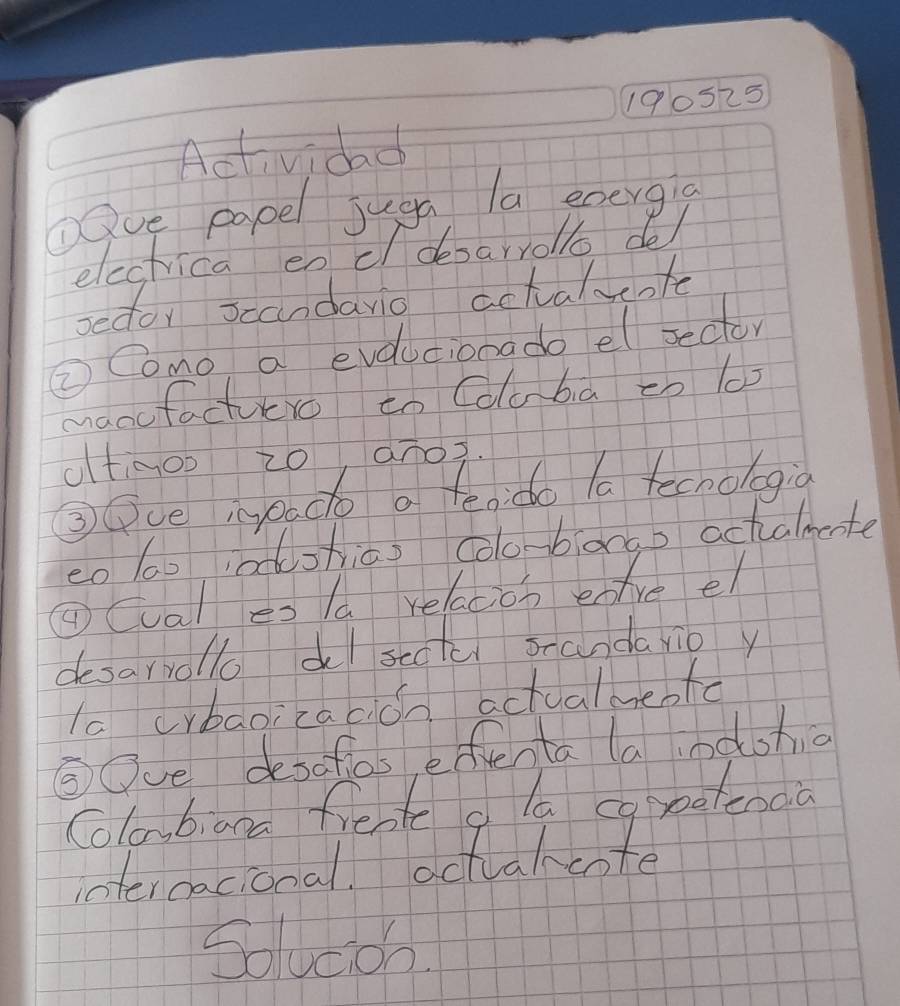 190525
Actividad
① Que papel juega la energia
electrica en el desarrollo del
sector secundario actualmente
② Como a evolucionado el sector
manufacturero en Colombia en los
ultimos 20 años.
③ Que impacto a tenido la tecnologia
en las industrias colombianas actualmente
④ Cual es la relación entre el
desarrollo del sector secundario y
la urbanización actualmente
⑤ Que desafios enfrenta la industria
Colombiana frente a la competencia
internacional. actualmente
Solución.